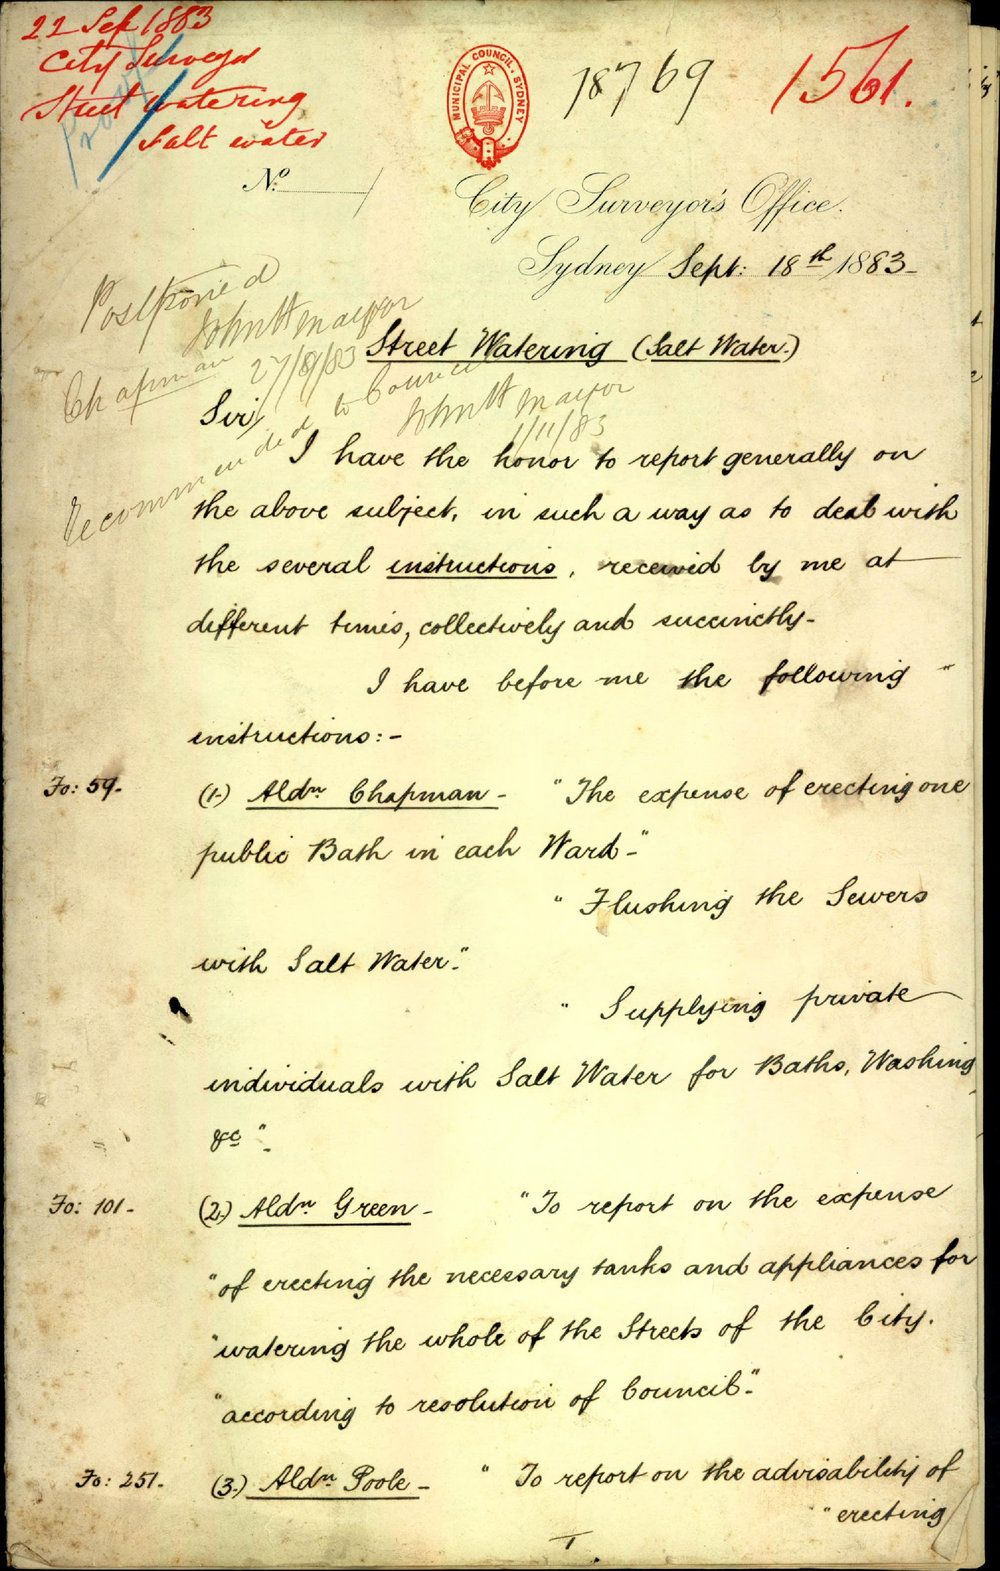 22 Sep 1883
City Surveyor
Street watering
Salt water
MUNICIPAL COUNCIL. SYDNEY
18769
1561.
No.
City Surveyor's Office.
Sydney Sept: 18th 1883-
Postponed
John H mayor
27/8/83
Chapman
Recommended to Council
John H mayor
1/11/83
Street Watering (Salt Water.)
Sir,
I have the honor to report generally on
the above subject, in such a way as to deal with
the several instructions, received by me at
different times, collectively and succinctly-
I have before me the following
instructions:-
Fo: 59-
(1.) Aldn. Chapman - "The expense of erecting one
public Bath in each Ward-"
"Flushing the Sewers
with Salt Water."
"Supplying private
individuals with Salt Water for Baths, Washing
&c"-
Fo: 101-
(2.) Aldn. Green - "To report on the expense
"of erecting the necessary tanks and appliances for
"watering the whole of the Streets of the City.
"according to resolution of Council-"
Fo: 251-
(3.) Aldn. Poole - "To report on the advisability of
"erecting